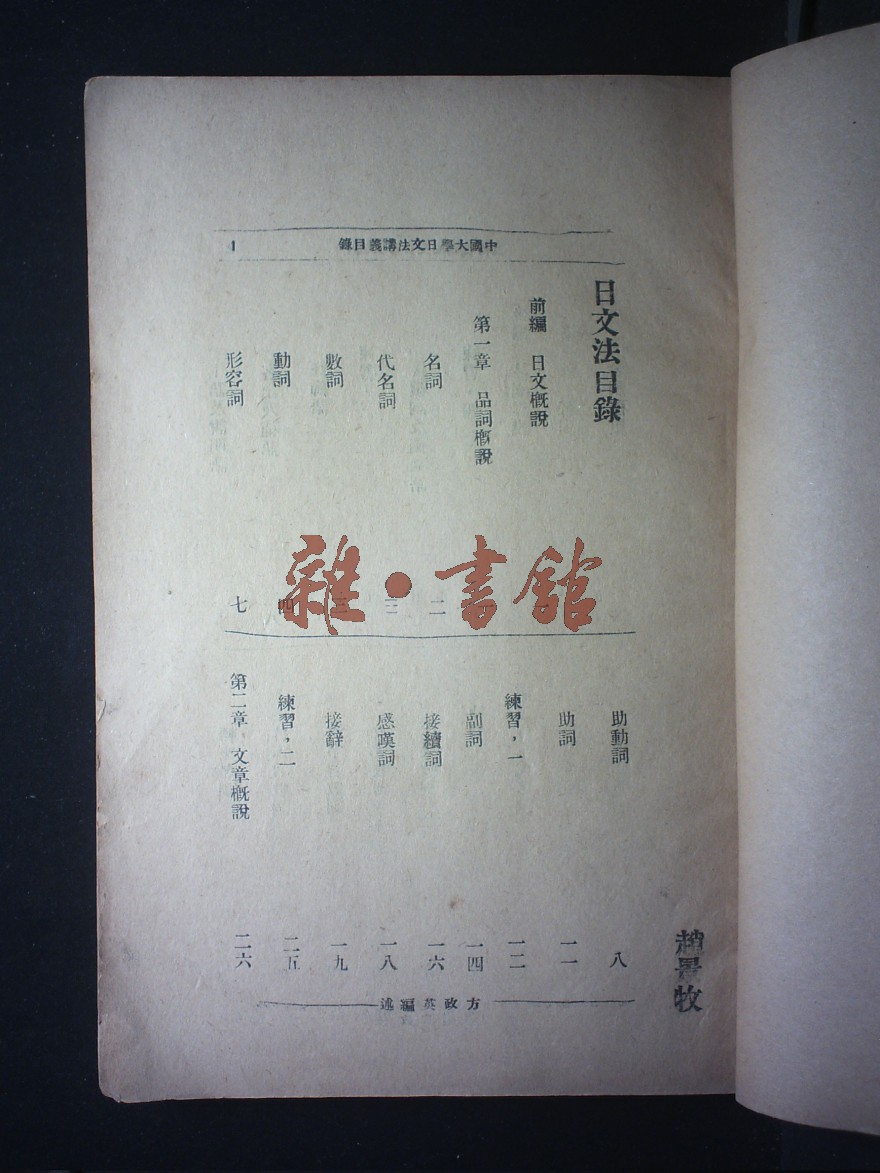 中國大學日文法講義目錄 1
日文法目錄
前編 日文概說
第一章 品詞概說
名詞 二
代名詞 三
數詞 三
動詞 四
形容詞 七
助動詞 八
助詞 一一
練習，一 一二
副詞 一四
接續詞 一六
感嘆詞 一八
接辭 一九
練習，二 二五
第二章 文章概說 二六
方政英編述
趙景牧
雜·書館